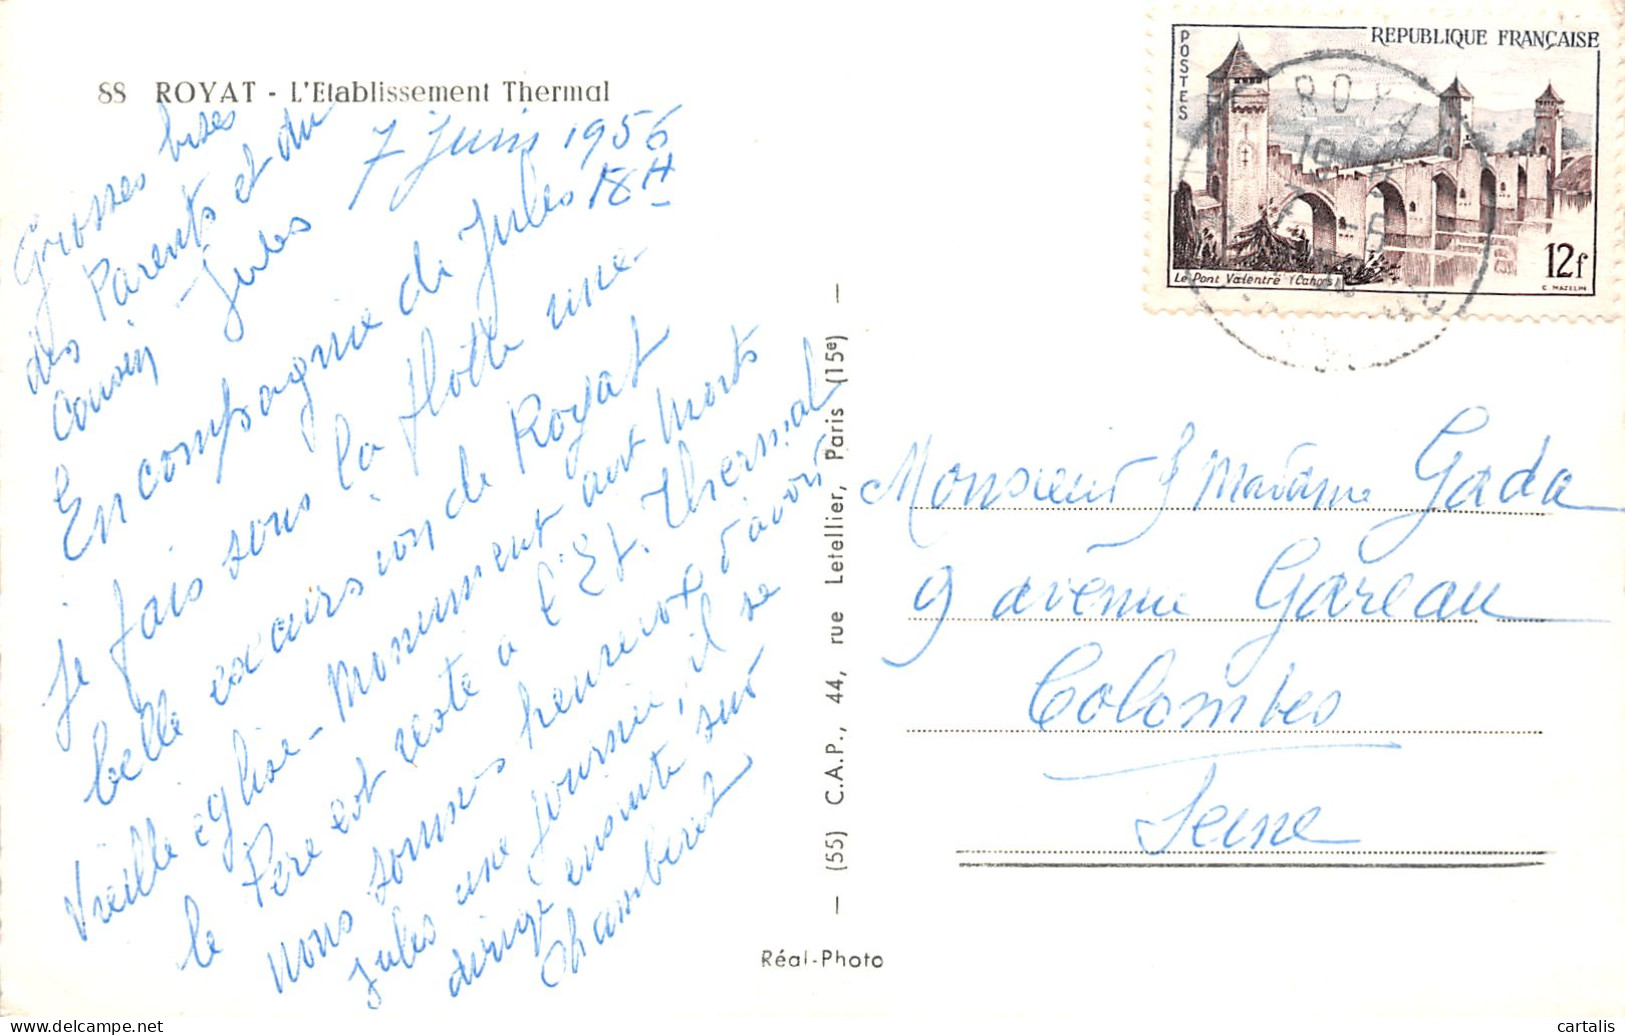 88 ROYAT - L'Etablissement Thermal
7 Juin 1956
18H
En compagnie de Jules
je fais sous la flotte une
belle excursion de Royat
Vieille église - Monument aux Morts
le Père est resté à l'Et. Thermal
nous sommes heureux d'avoir
Jules une journée, il se
dirige ensuite sur
Chamberet
Grosses bises
des Parents et du
Cousin Jules
— (55) C.A.P., 44, rue Letellier, Paris (15e) —
Réal-Photo
POSTES
REPUBLIQUE FRANÇAISE
Le Pont Valentré (Cahors)
12f
C. MAZELIN
ROYAT
Monsieur & Madame Gada
9 avenue Gareau
Colombes
Seine
delcampe.net
cartalis